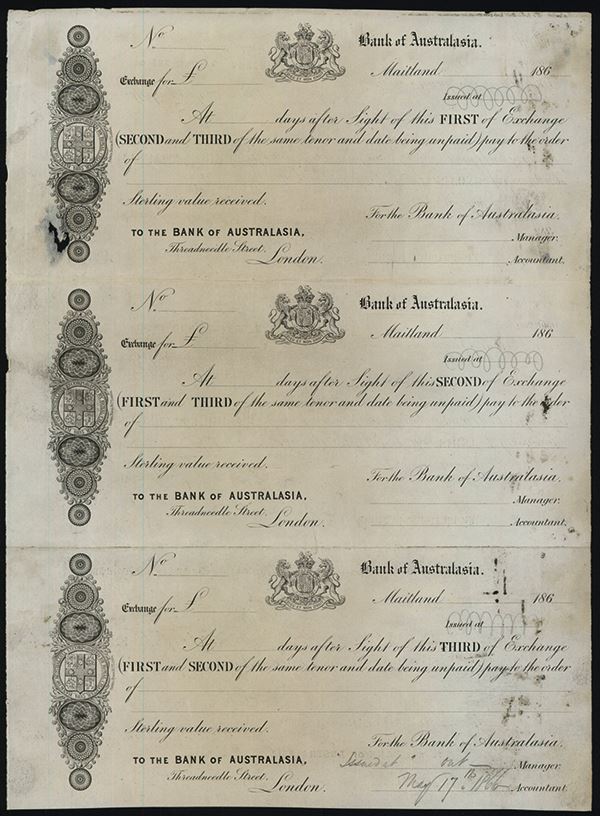 No
Bank of Australasia.
Exchange for £
Maitland 186
Issued at
At days after Sight of this FIRST of Exchange
(SECOND and THIRD of the same tenor and date being unpaid) pay to the order
of
Sterling value received.
For the Bank of Australasia.
TO THE BANK OF AUSTRALASIA,
Manager.
Threadneedle Street,
London.
Accountant.
No
Bank of Australasia.
Exchange for £
Maitland 186
Issued at
At days after Sight of this SECOND of Exchange
(FIRST and THIRD of the same tenor and date being unpaid) pay to the order
of
Sterling value received.
For the Bank of Australasia.
TO THE BANK OF AUSTRALASIA,
Manager.
Threadneedle Street,
London.
Accountant.
No
Bank of Australasia.
Exchange for £
Maitland 186
Issued at
At days after Sight of this THIRD of Exchange
(FIRST and SECOND of the same tenor and date being unpaid) pay to the order
of
Sterling value received.
For the Bank of Australasia.
TO THE BANK OF AUSTRALASIA,
"Issued at" out Manager.
Threadneedle Street,
London.
May 17th 1866 Accountant.